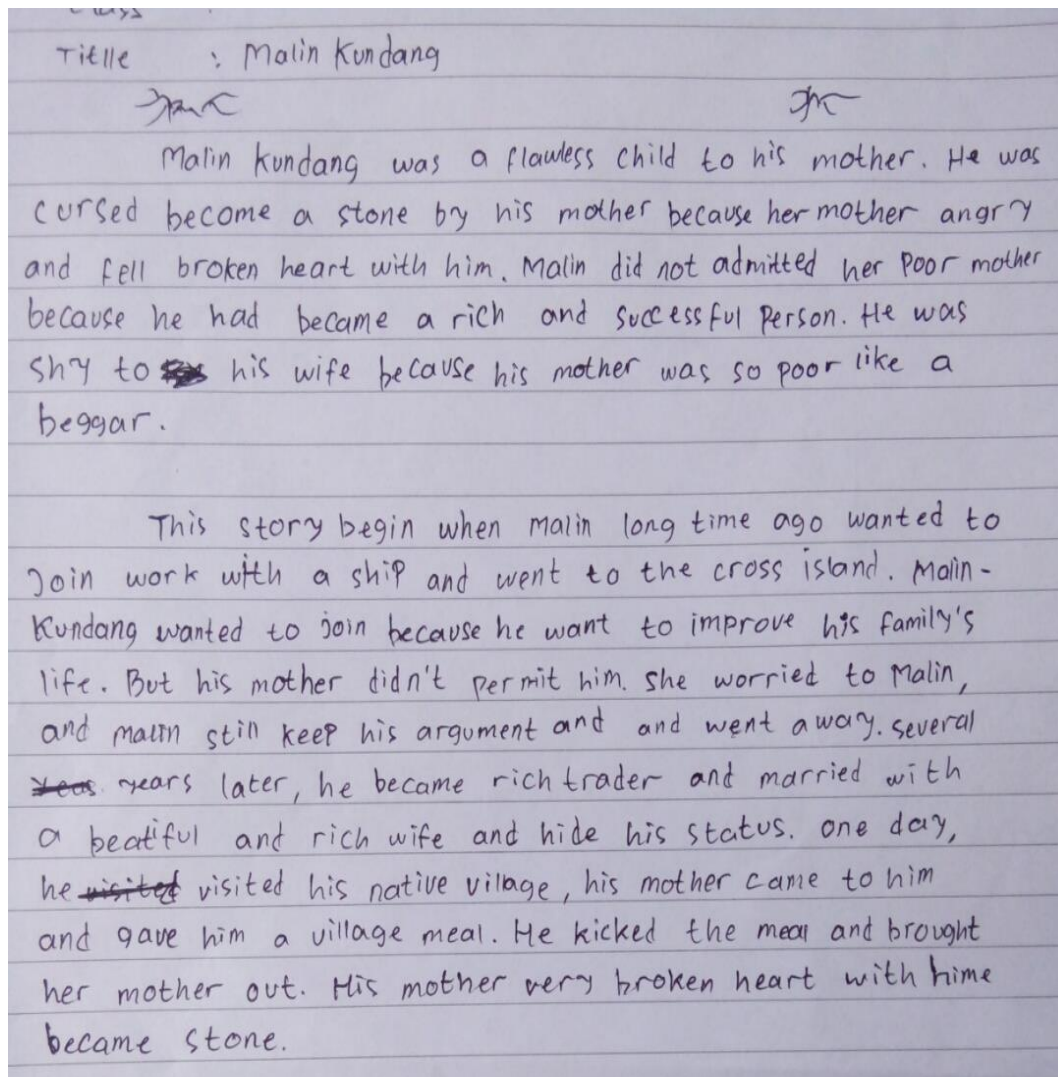 Titlle : Malin Kundang
Malin Kundang was a flawless child to his mother. He was
cursed become a stone by his mother because her mother angry
and fell broken heart with him. Malin did not admitted her poor mother
because he had became a rich and successful person. He was
shy to his wife because his mother was so poor like a
beggar.
This story begin when Malin long time ago wanted to
Join work with a ship and went to the cross island. Malin-
Kundang wanted to join because he want to improve his family's
life. But his mother didn't permit him. She worried to Malin,
and malin still keep his argument and and went away. several
years later, he became rich trader and married with
a beatiful and rich wife and hide his status. one day,
he visited his native village, his mother came to him
and gave him a village meal. He kicked the meal and brought
her mother out. His mother very broken heart with hime
became stone.